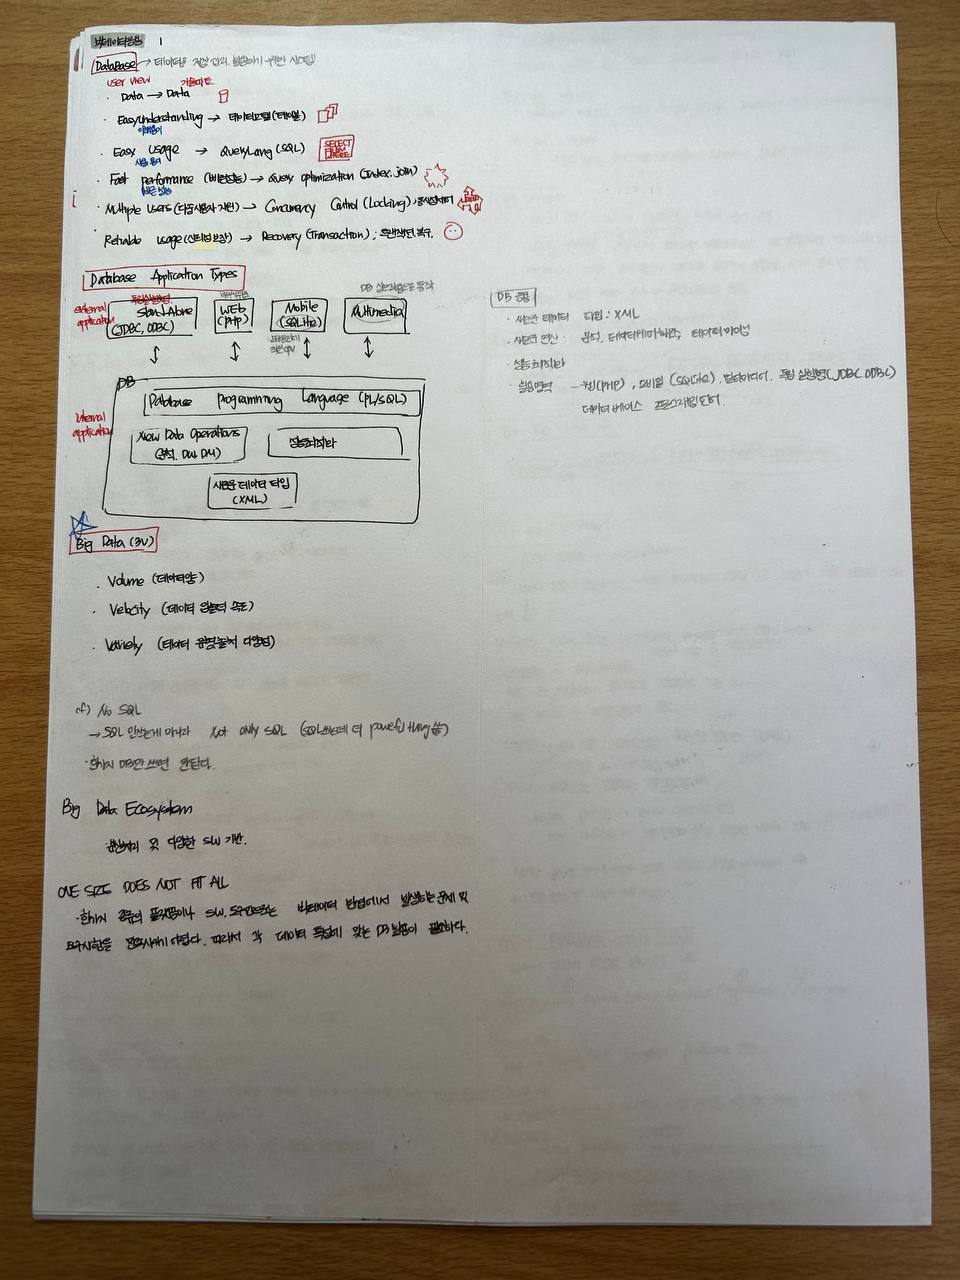 빅데이터응용 1
Database → 데이터를 저장, 관리, 활용하기 위한 시스템!
user view 기술파트
· Data → Data
· Easyunderstanding → 데이터모델(테이블)
이해용이
· Easy usage → QueryLang (SQL)
SELECT
FROM
WHERE
사용 용이
· Fast performance (빠른성능) → Query optimization (Index, join)
빠른 성능
· Multiple users (다중사용자 지원) → Concurrency Control (Locking),
· Reliable usage (신뢰성보장) → Recovery (Transaction);
Database Application Types
external
application
독립실행형
StandAlone
(JDBC, ODBC)
WEb
(PHP)
Mobile
(SQLite)
Multimedia
DB
internal
application
Database Programming Language (PL/SQL)
New Data Operations
(분석, DW, DM)
성능최적화
새로운 데이터 타입
(XML)
Big Data (3V)
· Volume (데이터양)
· Velocity (데이터 입출력 속도)
· Variety (데이터 유형 다양성)
cf) No SQL
→ SQL 안쓰는게 아니라 Not only SQL (SQL쓰는데 더 powerful thing 씀)
· 한가지 DB만 쓰면 안된다.
Big Data Ecosystem
분산처리 및 다양한 SW 기반.
ONE SIZE DOES NOT FIT ALL
· 한가지 종류의 플랫폼이나 SW, 도구만으로는 빅데이터 방법에서 발생하는 문제 및
요구사항을 어렵다. 따라서 각 데이터 특성에 맞는 DB 활용이 필요하다.
DB 응용
· 새로운 데이터 타입 : XML
· 새로운 연산 : 분석, 데이터웨어하우스, 데이터마이닝
· 성능최적화
· 실행영역 → 웹(PHP), 모바일 (SQLite), 멀티미디어, 독립 실행형(JDBC ODBC)
데이터베이스 프로그래밍언어.